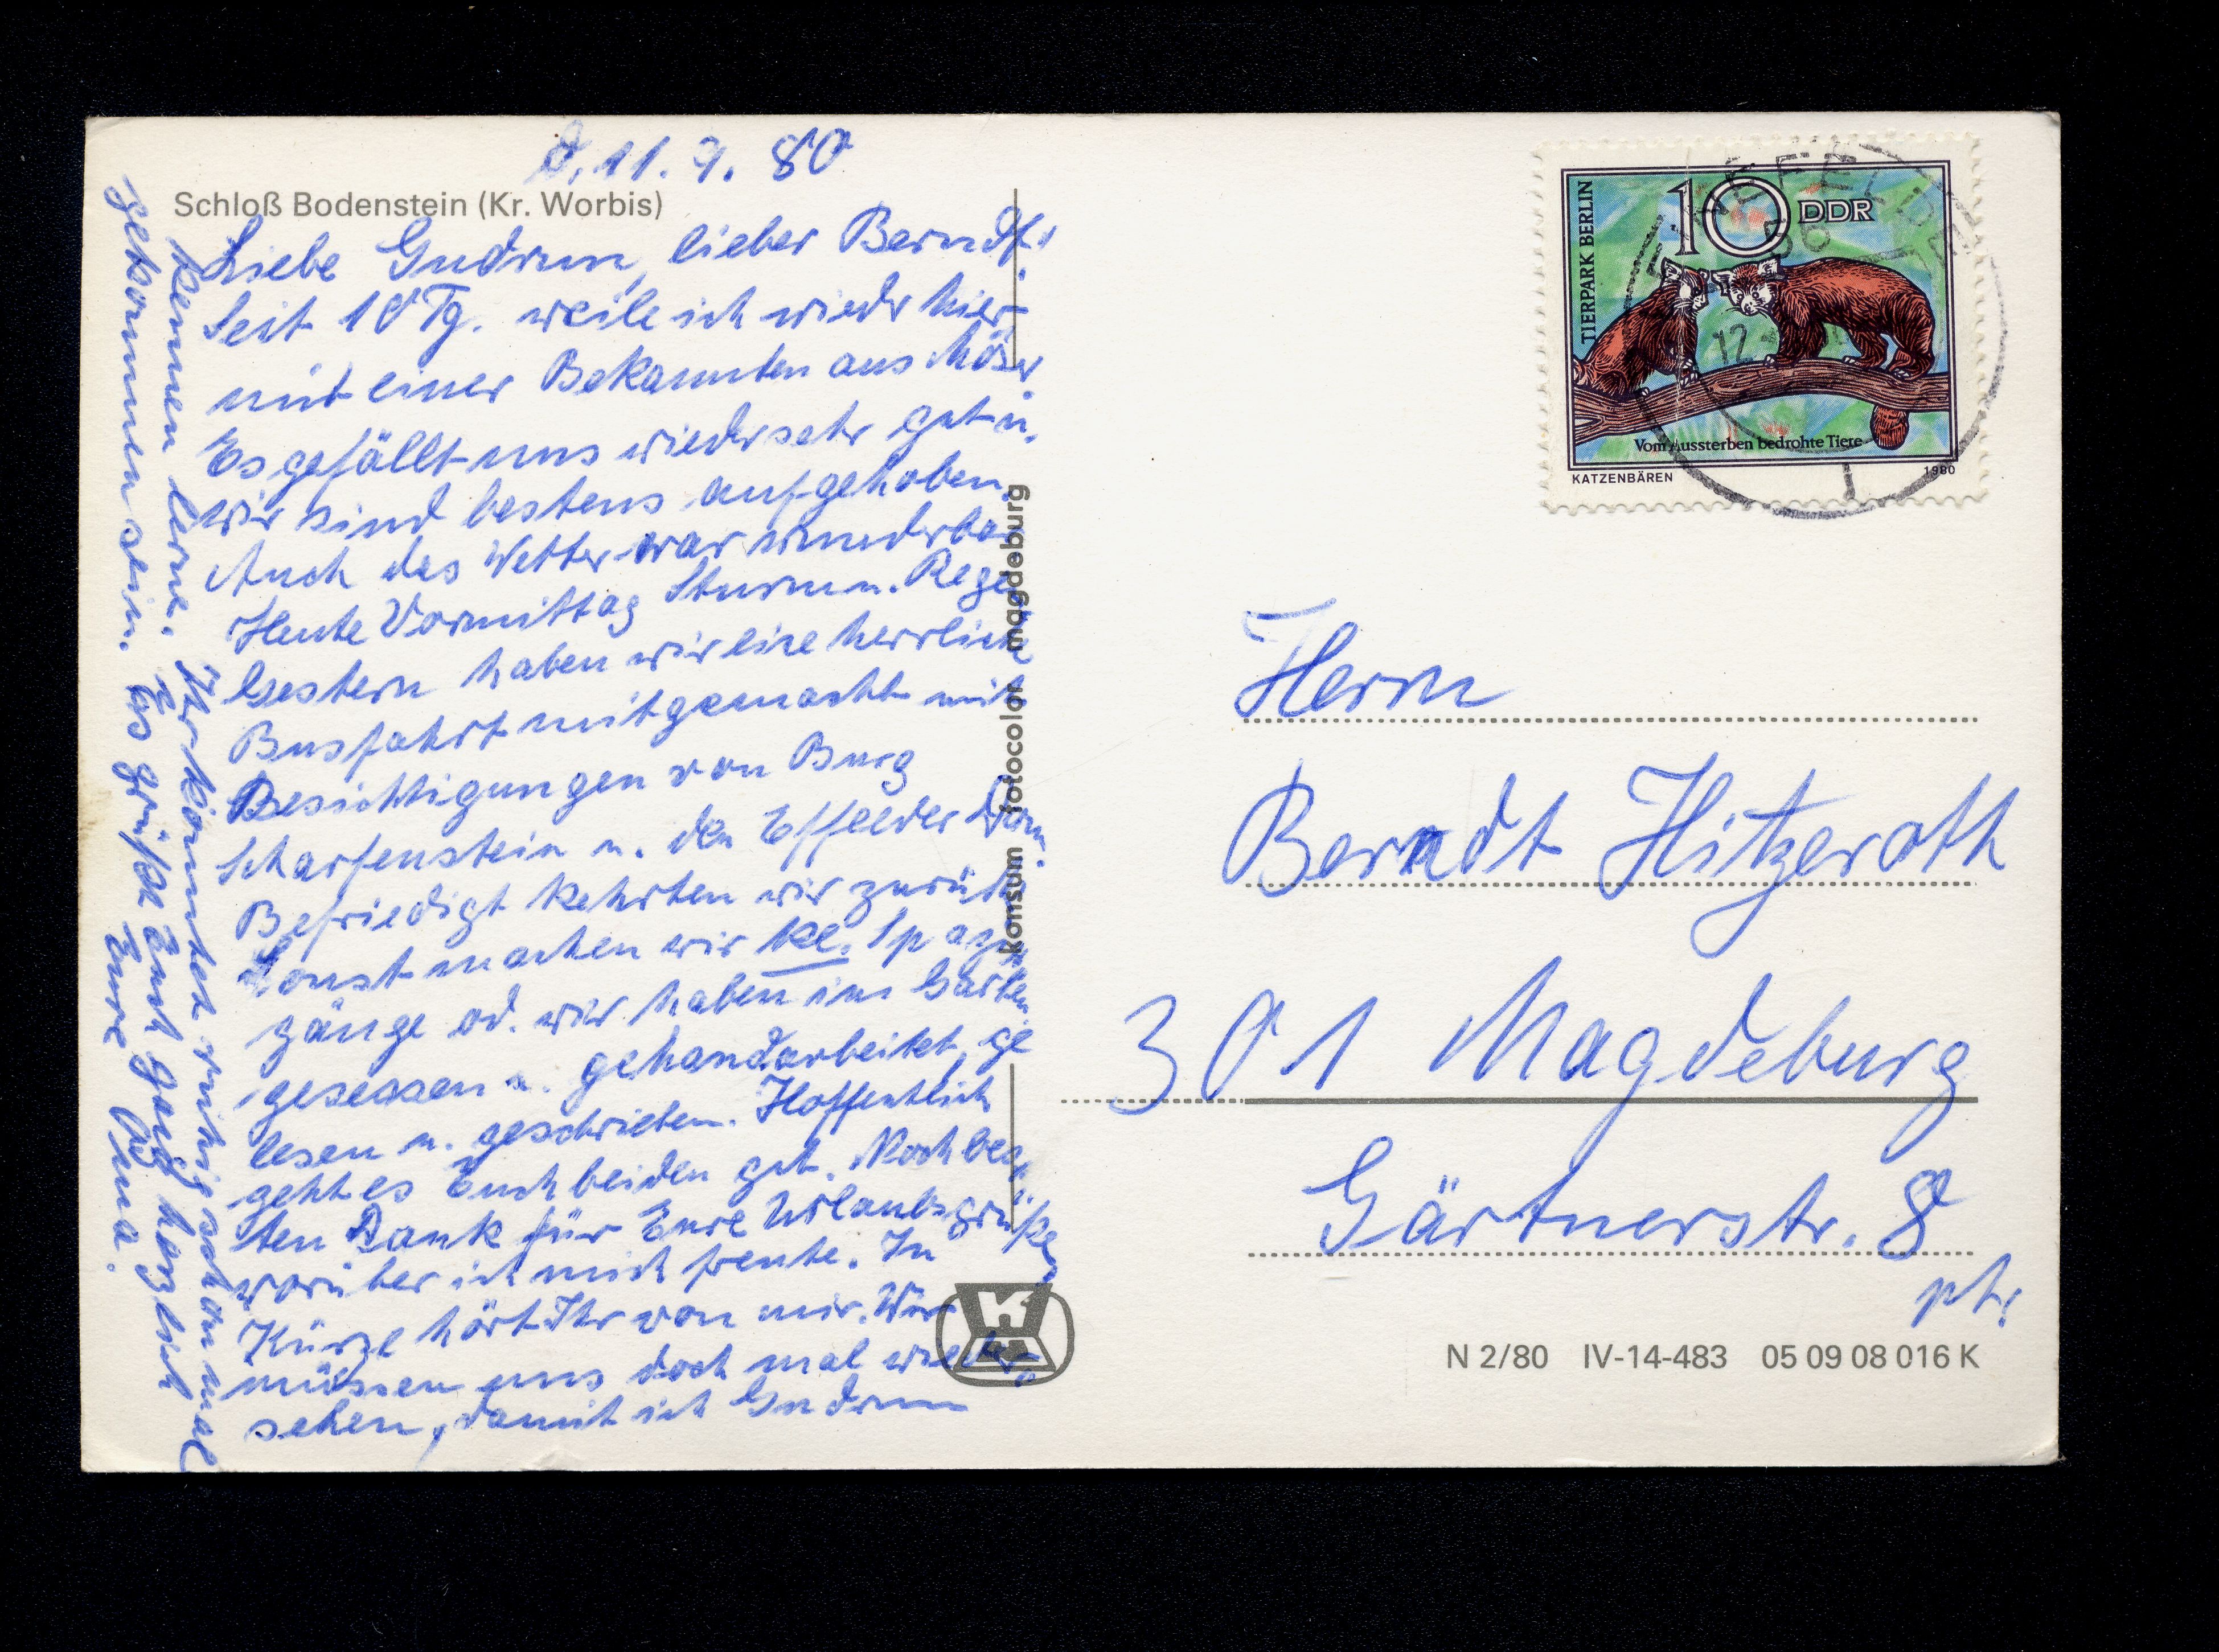 d. 11. 9. 80
Schloß Bodenstein (Kr. Worbis)
Liebe Gudrun, lieber Berndt!
Seit 10 Tg. weile ich wieder hier
mit einer Bekannten aus Möser
Es gefällt uns wieder sehr gut u.
wir sind bestens aufgehoben.
Auch das Wetter war wunderbar
Heute Vormittag Sturm u. Regen
Gestern haben wir eine herrliche
Busfahrt mitgemacht mit
Besichtigungen von Burg
Scharfenstein u. den Effelder Dom.
Befriedigt kehrten wir zurück.
Sonst machen wir kl. Spazier
gänge od. wir haben im Garten
gesessen u. gehandarbeitet, ge
lesen u. geschrieben. Hoffentlich
geht es Euch beiden gut. Noch bes
ten Dank für Eure Urlaubsgrüße
worüber ich mich freute. In
Kürze hört Ihr von mir. Wir
müssen uns doch mal wieder
sehen, damit ich Gudrun
kennen lerne. Ihr könntet ruhig schon mal
gekommen sein. Es grüßt Euch ganz herzlich
Eure Oma.
konsum fotocolor magdeburg
TIERPARK BERLIN
10 DDR
Vom Aussterben bedrohte Tiere
KATZENBÄREN 1980
12
Herrn
Berndt Hitzeroth
301 Magdeburg
Gärtnerstr. 8
ptr.
N 2/80 IV-14-483 05 09 08 016 K